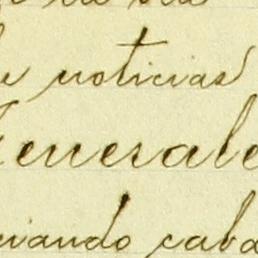 e noticias
Generale
ciando caba